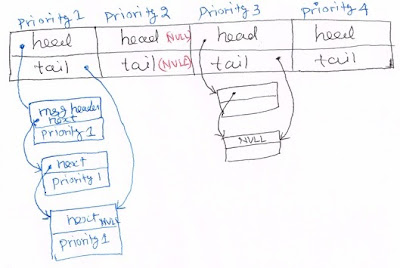 Priority 1 Priority 2 Priority 3 Priority 4
head head NULL head head
tail tail (NULL) tail tail
msg header
next
Priority 1
next
Priority 1
next NULL
Priority 1
NULL